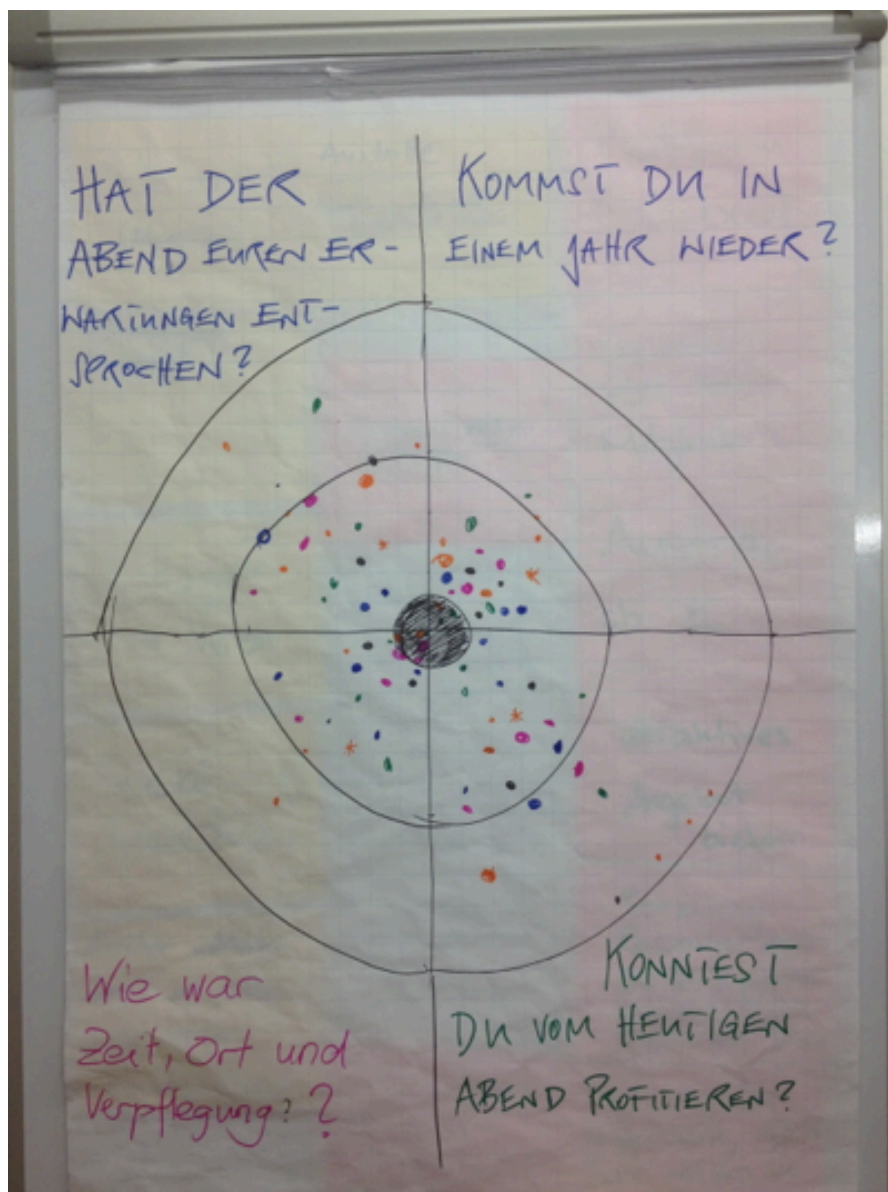 HAT DER
ABEND EUREN ER-
WARTUNGEN ENT-
SPROCHEN?
KOMMST DU IN
EINEM JAHR WIEDER?
Wie war
Zeit, Ort und
Verpflegung? ?
KONNTEST
DU VOM HEUTIGEN
ABEND PROFITIEREN?